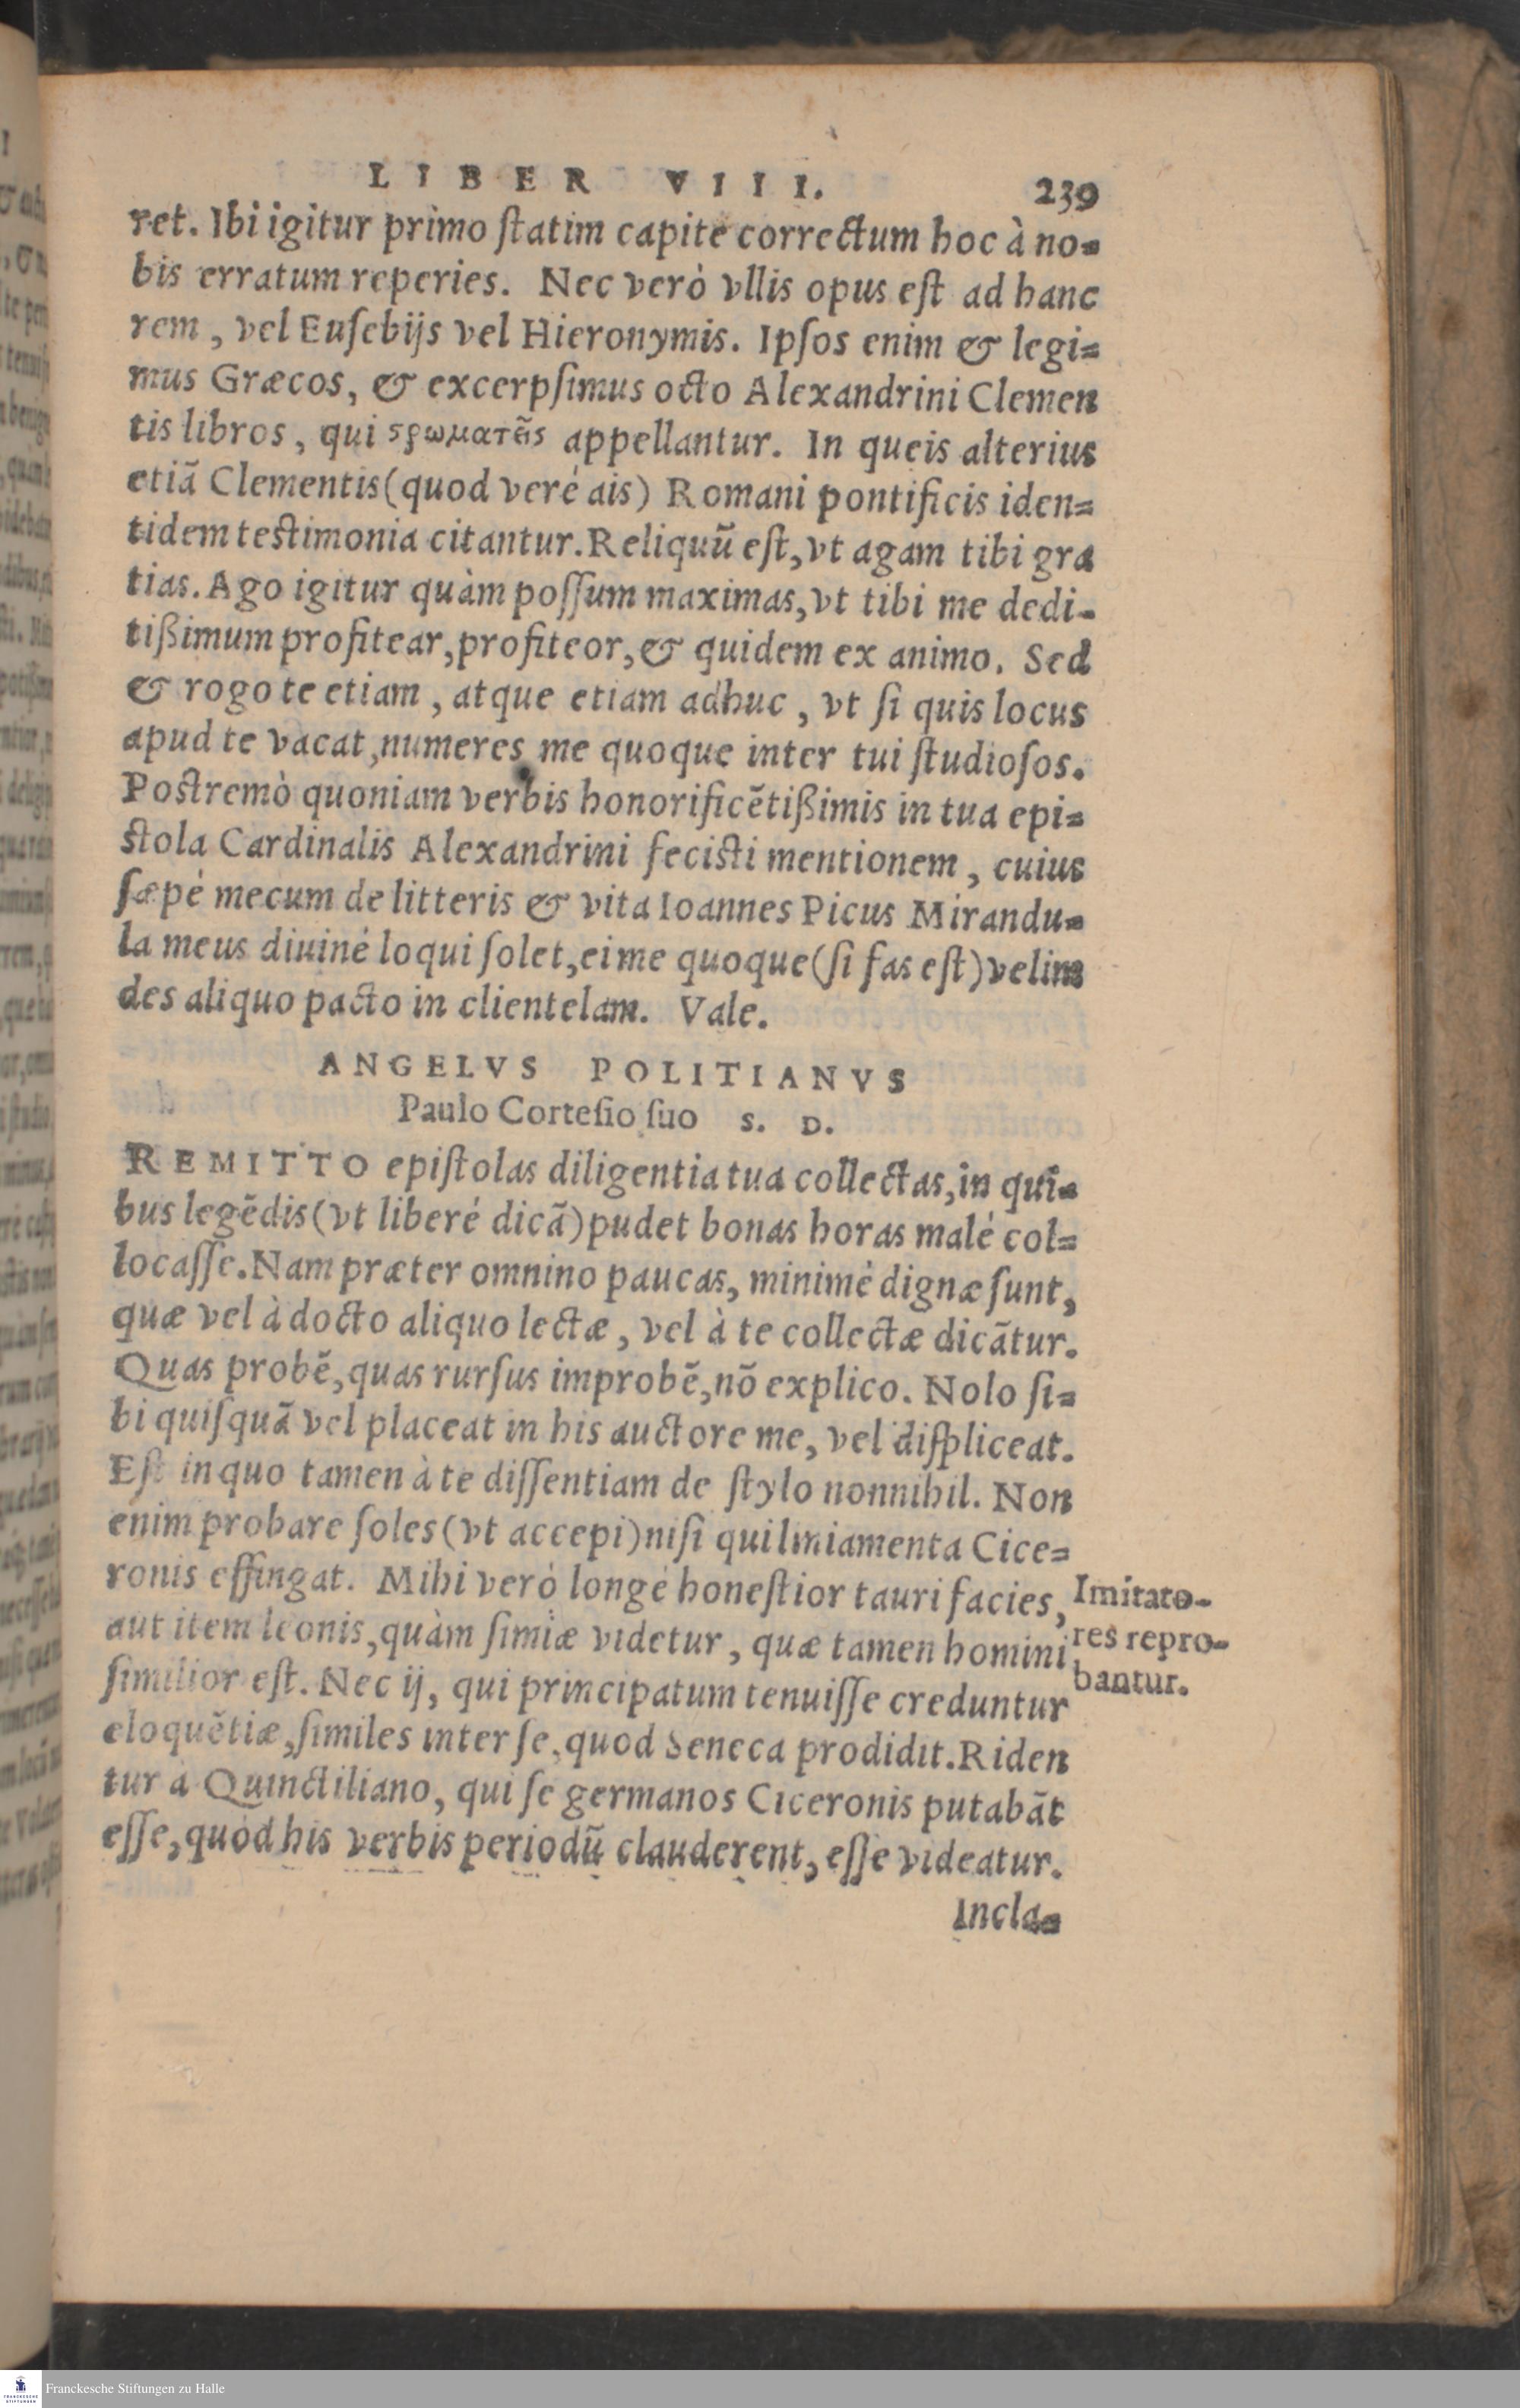 LIBER VIII. 239
ret. Ibi igitur primo ſtatim capite correctum hoc à no=
bis erratum reperies. Nec verò vllis opus eſt ad hanc
rem, vel Euſebijs vel Hieronymis. Ipſos enim & legi=
mus Græcos, & excerpſimus octo Alexandrini Clemen
tis libros, qui ϛρωματεῖς appellantur. In queis alterius
etiā Clementis (quod veré ais) Romani pontificis iden=
tidem testimonia citantur. Reliquū eſt, vt agam tibi gra
tias. Ago igitur quàm poſſum maximas, vt tibi me dedi-
tißimum profitear, profiteor, & quidem ex animo. Sed
& rogo te etiam, atque etiam adhuc, vt ſi quis locus
apud te vacat, numeres me quoque inter tui ſtudioſos.
Postremò quoniam verbis honorificētißimis in tua epi=
ſtola Cardinalis Alexandrini fecisti mentionem, cuius
ſæpé mecum de litteris & vita Ioannes Picus Mirandu=
la meus diuiné loqui ſolet, ei me quoque (ſi fas eſt) velim
des aliquo pacto in clientelam. Vale.
ANGELVS POLITIANVS
Paulo Corteſio ſuo S. D.
REMITTO epiſtolas diligentia tua collectas, in qui=
bus legēdis (vt liberé dicā) pudet bonas horas malé col=
locaſſe. Nam præter omnino paucas, minimé dignæ ſunt,
quæ vel à docto aliquo lectæ, vel à te collectæ dicātur.
Quas probē, quas rurſus improbē, nō explico. Nolo ſi=
bi quiſquā vel placeat in his auctore me, vel diſpliceat.
Eſt in quo tamen à te diſſentiam de ſtylo nonnihil. Non
enim probare ſoles (vt accepi) niſi qui liniamenta Cice=
ronis effingat. Mihi veró longé honeſtior tauri facies,
aut item leonis, quàm ſimiæ videtur, quæ tamen homini
ſimilior eſt. Nec ij, qui principatum tenuiſſe creduntur
eloquētiæ, ſimiles inter ſe, quod Seneca prodidit. Riden
tur à Quinctiliano, qui ſe germanos Ciceronis putabāt
eſſe, quòd his verbis periodū clauderent, eſſe videatur.
Incla=
Imitato-
res repro-
bantur.
Franckesche Stiftungen zu Halle